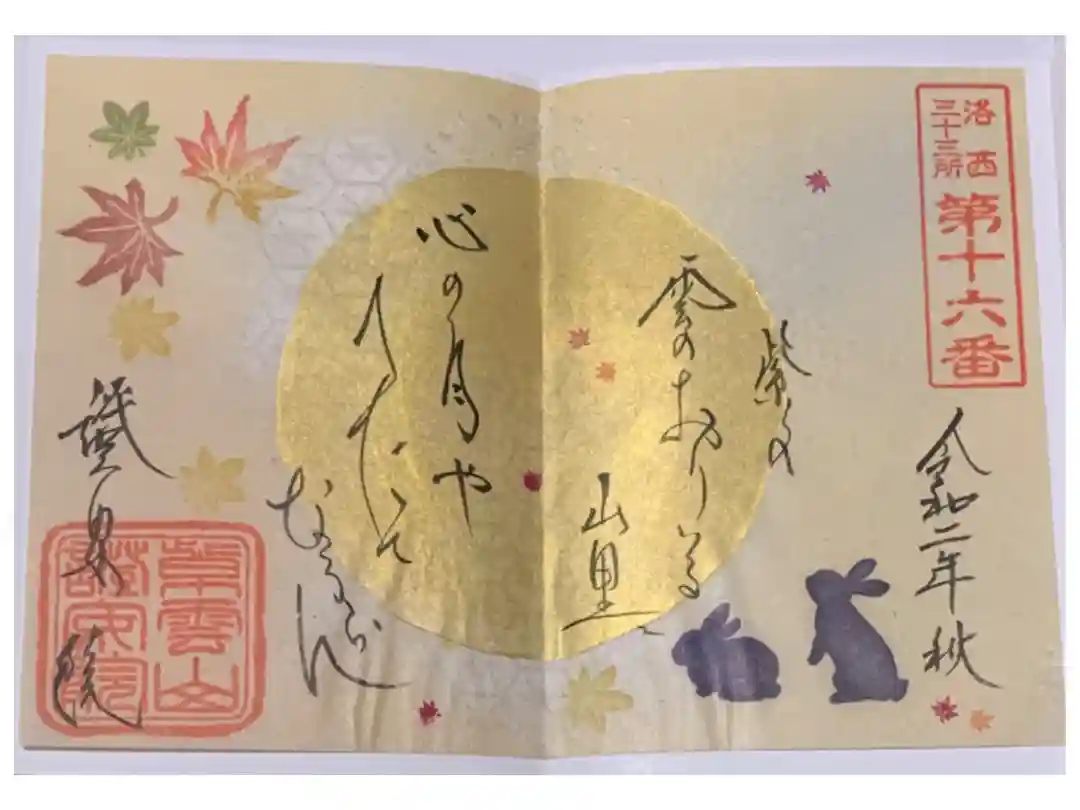 洛西
三十三所
第十六番
令和二年 秋
紫の
雲のおりゐる
山里に
心の月や
へだて
なるらん
紫雲山